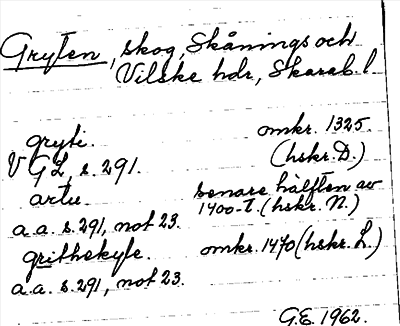 Gryten, skog, Skånings och
Vilske hdr, Skarab. l.
gryti. omkr. 1325.
VGL, s. 291. (hskr. D.)
artu. senare hälften av
1400-t. (hskr. N.)
a.a. s. 291, not 23.
grithskyle. omkr. 1470 (hskr. L.)
a.a. s. 291, not 23.
G.E. 1962.